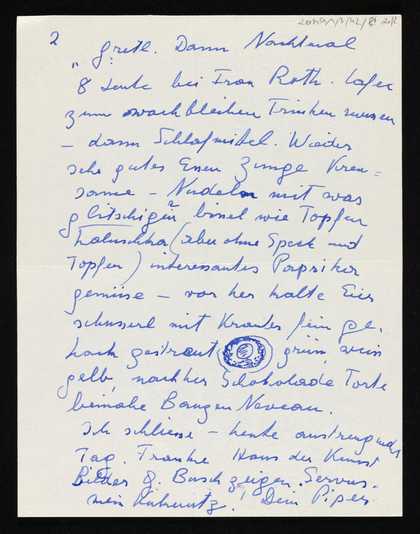 2
"gretl. Dann Nachtmal
8 Leute bei Frau Roth. Cafee
zum wachbleiben Trinken müssen
– dann Schlafmittel. Wieder
sehr gutes Essen Zunge Kren=
sauce – Nudeln mit was
glitschigen bissl wie Topfen
haluschka (aber ohne Speck und
Topfen) interessantes Paprika
gemüse – vorher kalte Eier
schüsserl mit Kräuter fein ge.
hack gestreut grün, weiss
gelb, nachher Schokolade Torte
beinahe Niveau.
Ich schliesse – heute anstrengender
Tag. Haus der Kunst
Bilder zeigen. Servus.
mein Dein